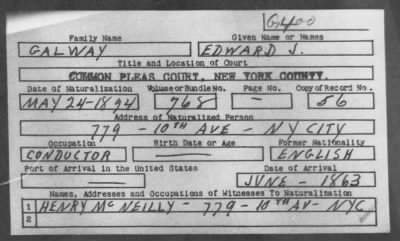 G400
Family Name Given Name or Names
GALWAY EDWARD J.
Title and Location of Court
COMMON PLEAS COURT, NEW YORK COUNTY.
Date of Naturalization Volume or Bundle No. Page No. Copy of Record No.
MAY 24-1894 768 - 56
Address of Naturalized Person
779 - 10TH AVE - NY CITY
Occupation Birth Date or Age Former Nationality
CONDUCTOR — ENGLISH
Port of Arrival in the United States Date of Arrival
— JUNE - 1863
Names, Addresses and Occupations of Witnesses To Naturalization
1 HENRY McNEILLY - 779 - 10TH AV - NYC
2